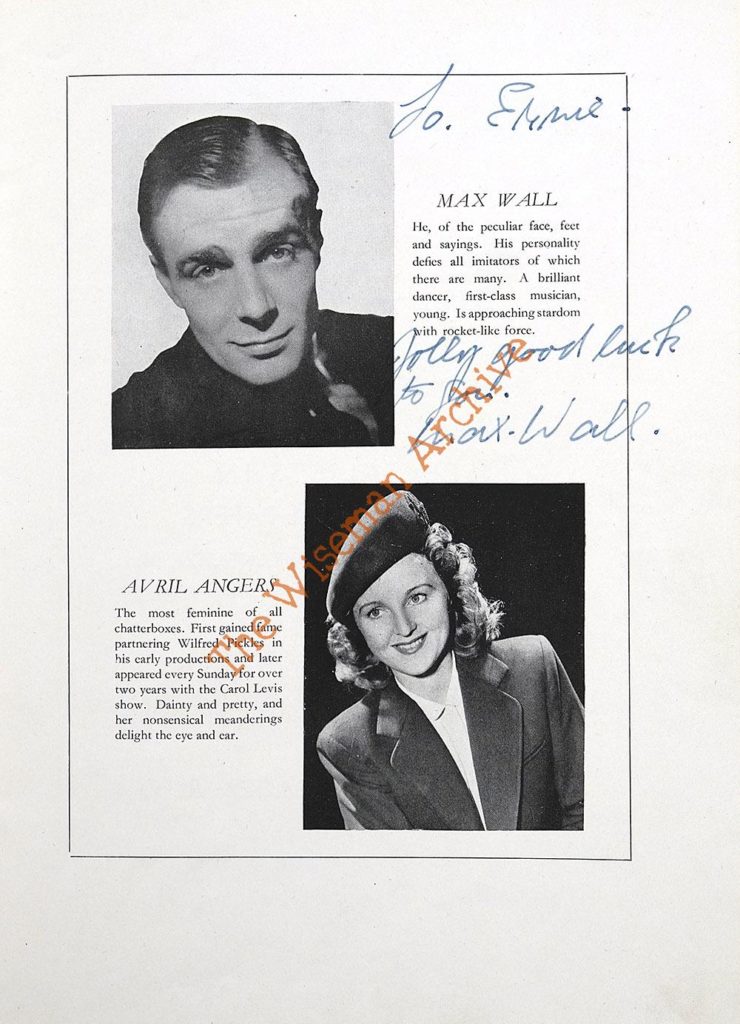 To. Ernie.
MAX WALL
He, of the peculiar face, feet
and sayings. His personality
defies all imitators of which
there are many. A brilliant
dancer, first-class musician,
young. Is approaching stardom
with rocket-like force.
Jolly good luck
to you.
Max. Wall.
AVRIL ANGERS
The most feminine of all
chatterboxes. First gained fame
partnering Wilfred Pickles in
his early productions and later
appeared every Sunday for over
two years with the Carol Levis
show. Dainty and pretty, and
her nonsensical meanderings
delight the eye and ear.
The Wiseman Archive